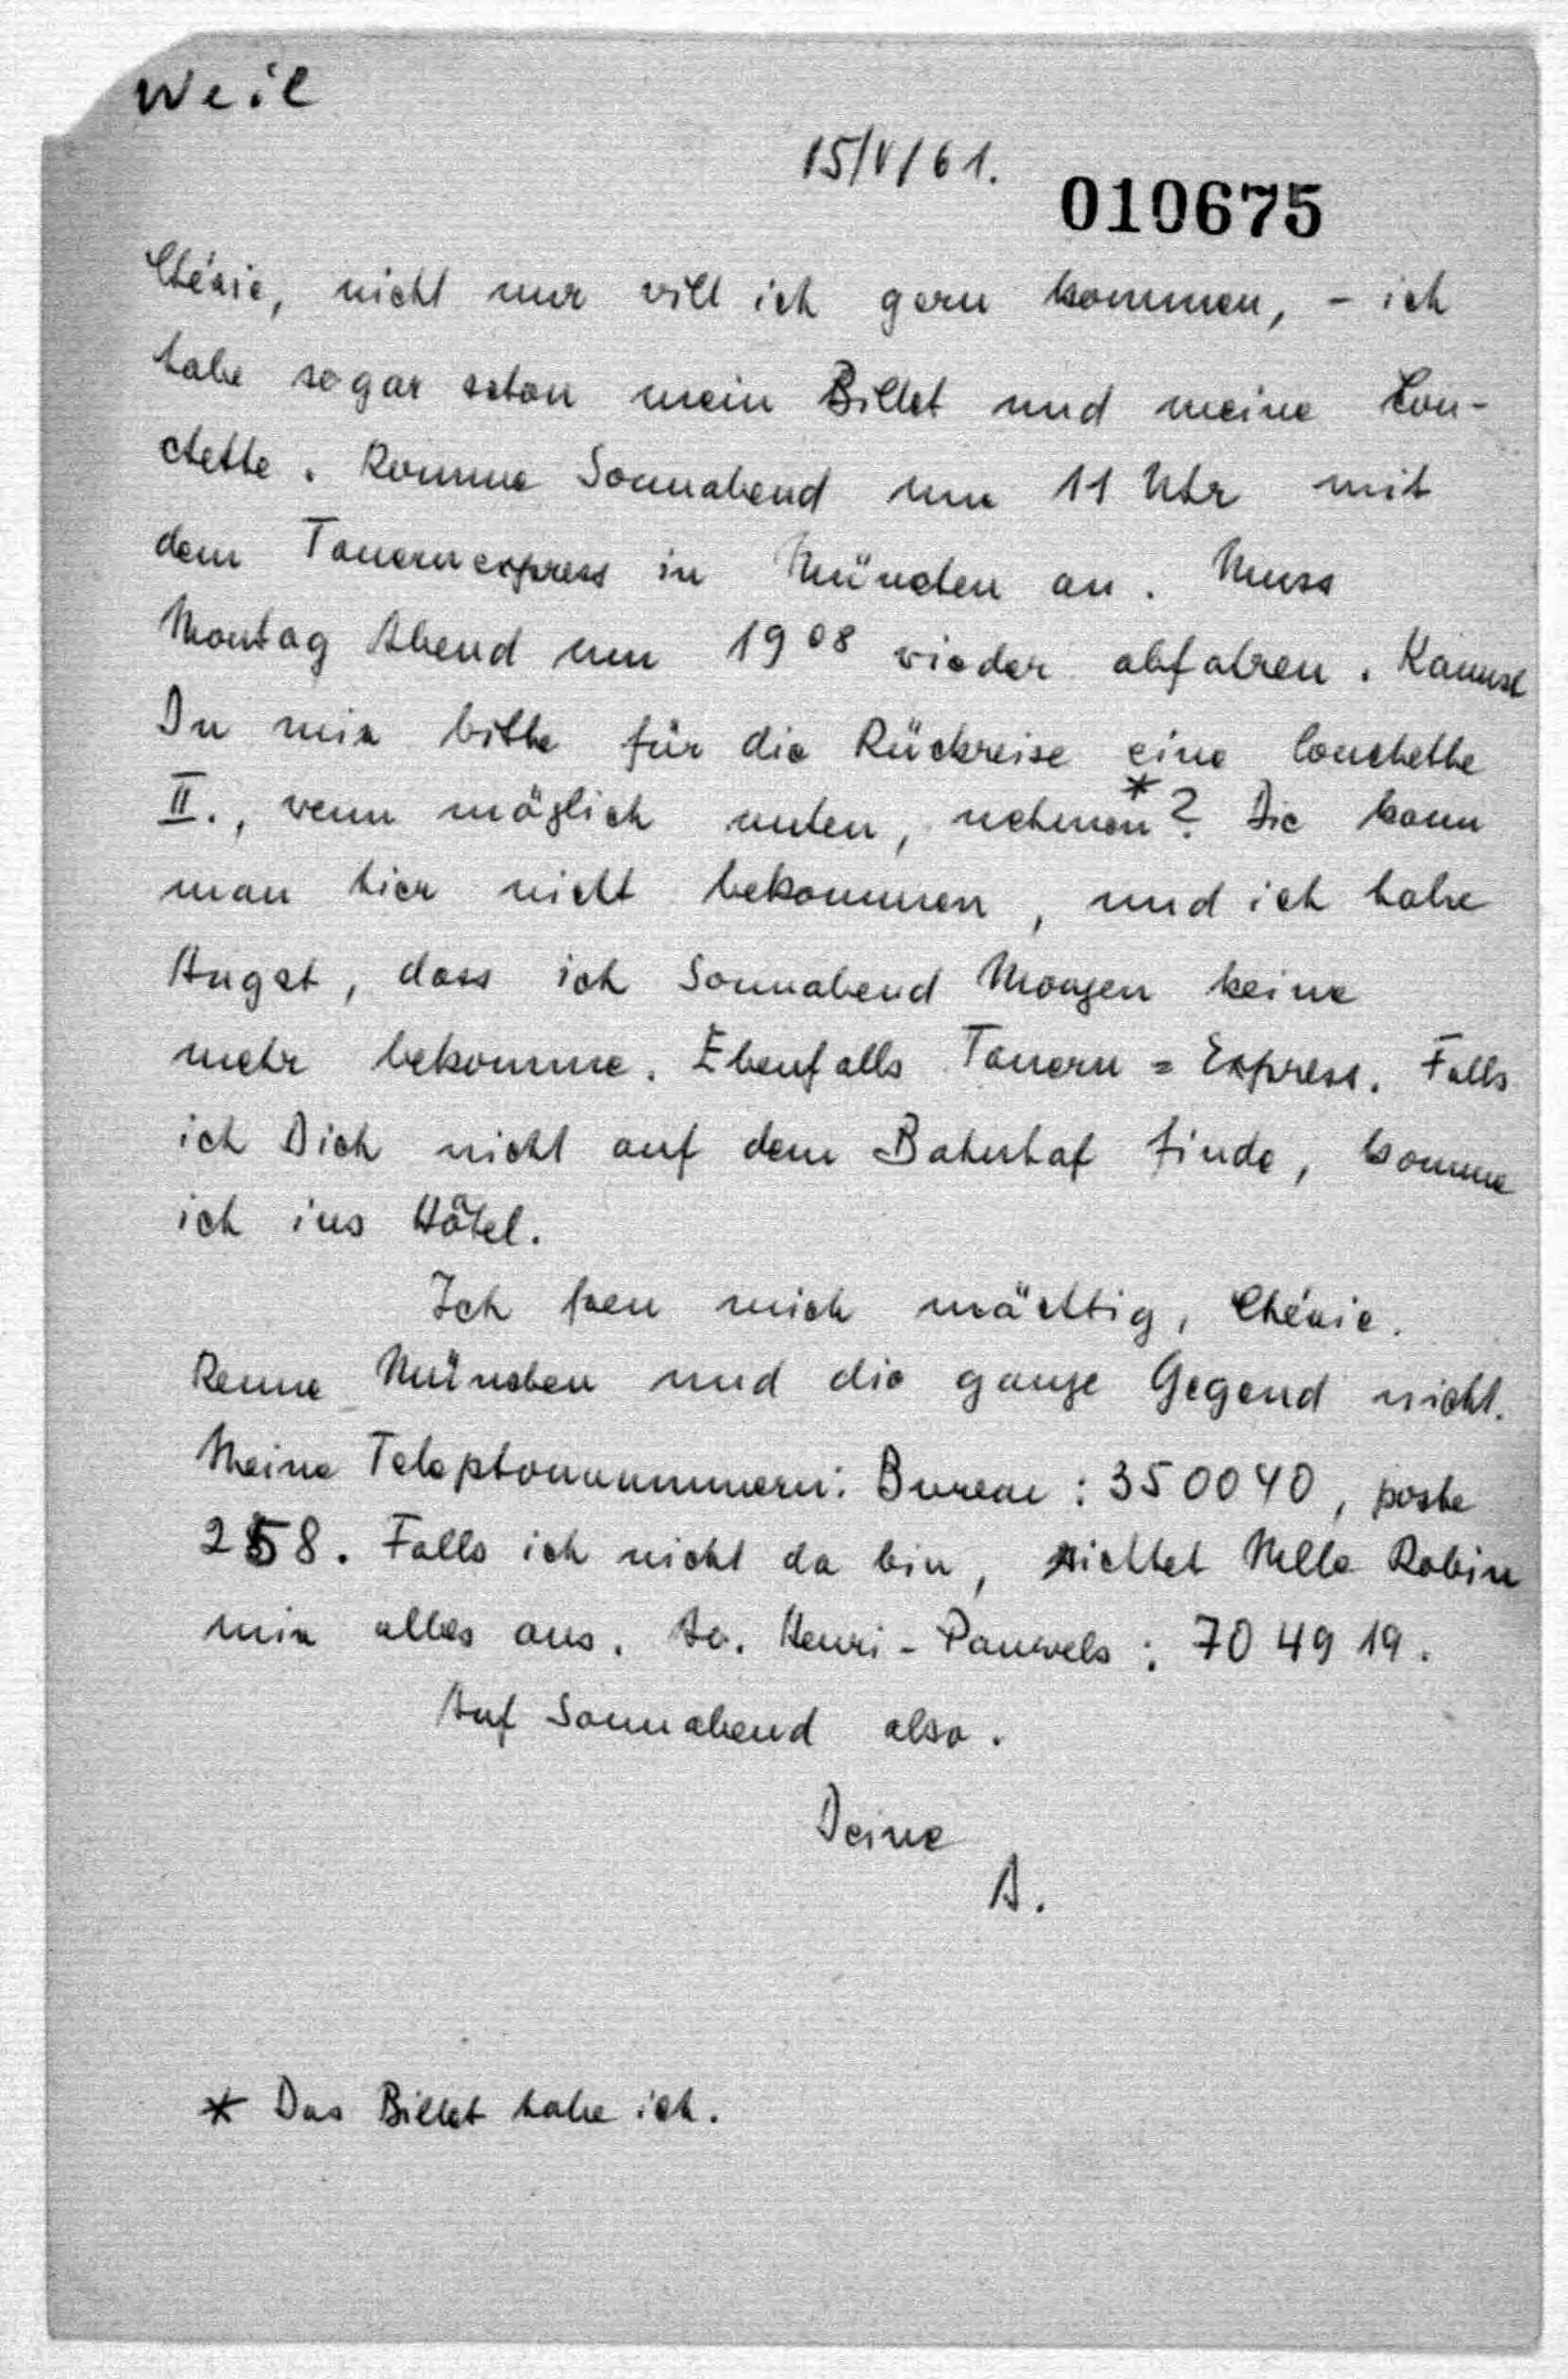 Weil
15/V/61.
010675
Chérie, nicht nur will ich gern kommen, - ich
habe sogar schon mein Billet und meine Cou-
chette. Komme Sonnabend um 11 Uhr mit
dem Tauernexpress in München an. Muss
Montag Abend um 19 08 wieder abfahren. Kannst
Du mir bitte für die Rückreise eine Couchette
II., wenn möglich unten, nehmen*? Die kann
man hier nicht bekommen, und ich habe
Angst, dass ich Sonnabend Morgen keine
mehr bekomme. Ebenfalls Tauern = Express. Falls
ich Dich nicht auf dem Bahnhof finde, komme
ich ins Hôtel.
Ich freu mich mächtig, Chérie.
Kenne München und die ganze Gegend nicht.
Meine Telephonnummern: Bureau: 350040, poste
258. Falls ich nicht da bin, richtet Melle Robin
mir alles aus. Av. Henri-Pauwels: 70 49 19.
Auf Sonnabend also.
Deine
A.
* Das Billet habe ich.